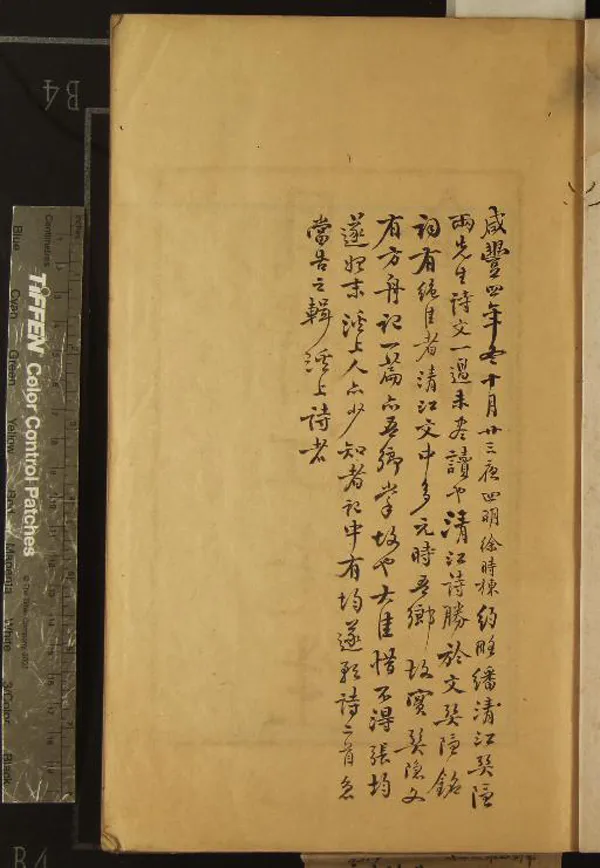 咸豐四年冬十月廿三夜四明徐時棟約略繙清江巽隱
兩先生詩文一過未盡讀也清江詩勝於文巽隱銘
詞有絕佳者清江文中多元時吾鄉故實巽隱文
有方舟記一篇亦吾鄉掌故也大佳惜不得張均
遂始末溪上人亦少知者記中有均遂歌詩二首急
當告之輯溪上詩者
B4
TIFFEN Color Control Patches
Centimetres
Inches
Blue
Cyan
Green
Yellow
Red
Magenta
White
3/Color
Black
B4